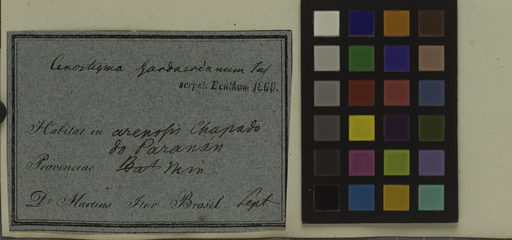 Cenostigma Gardnerianum Tul
scrpst. Bentham 1860.
Habitat in arenosis Chapado
do Paranán
Provinciae Bat. Min
Dr Martius Iter Brasil. Sept